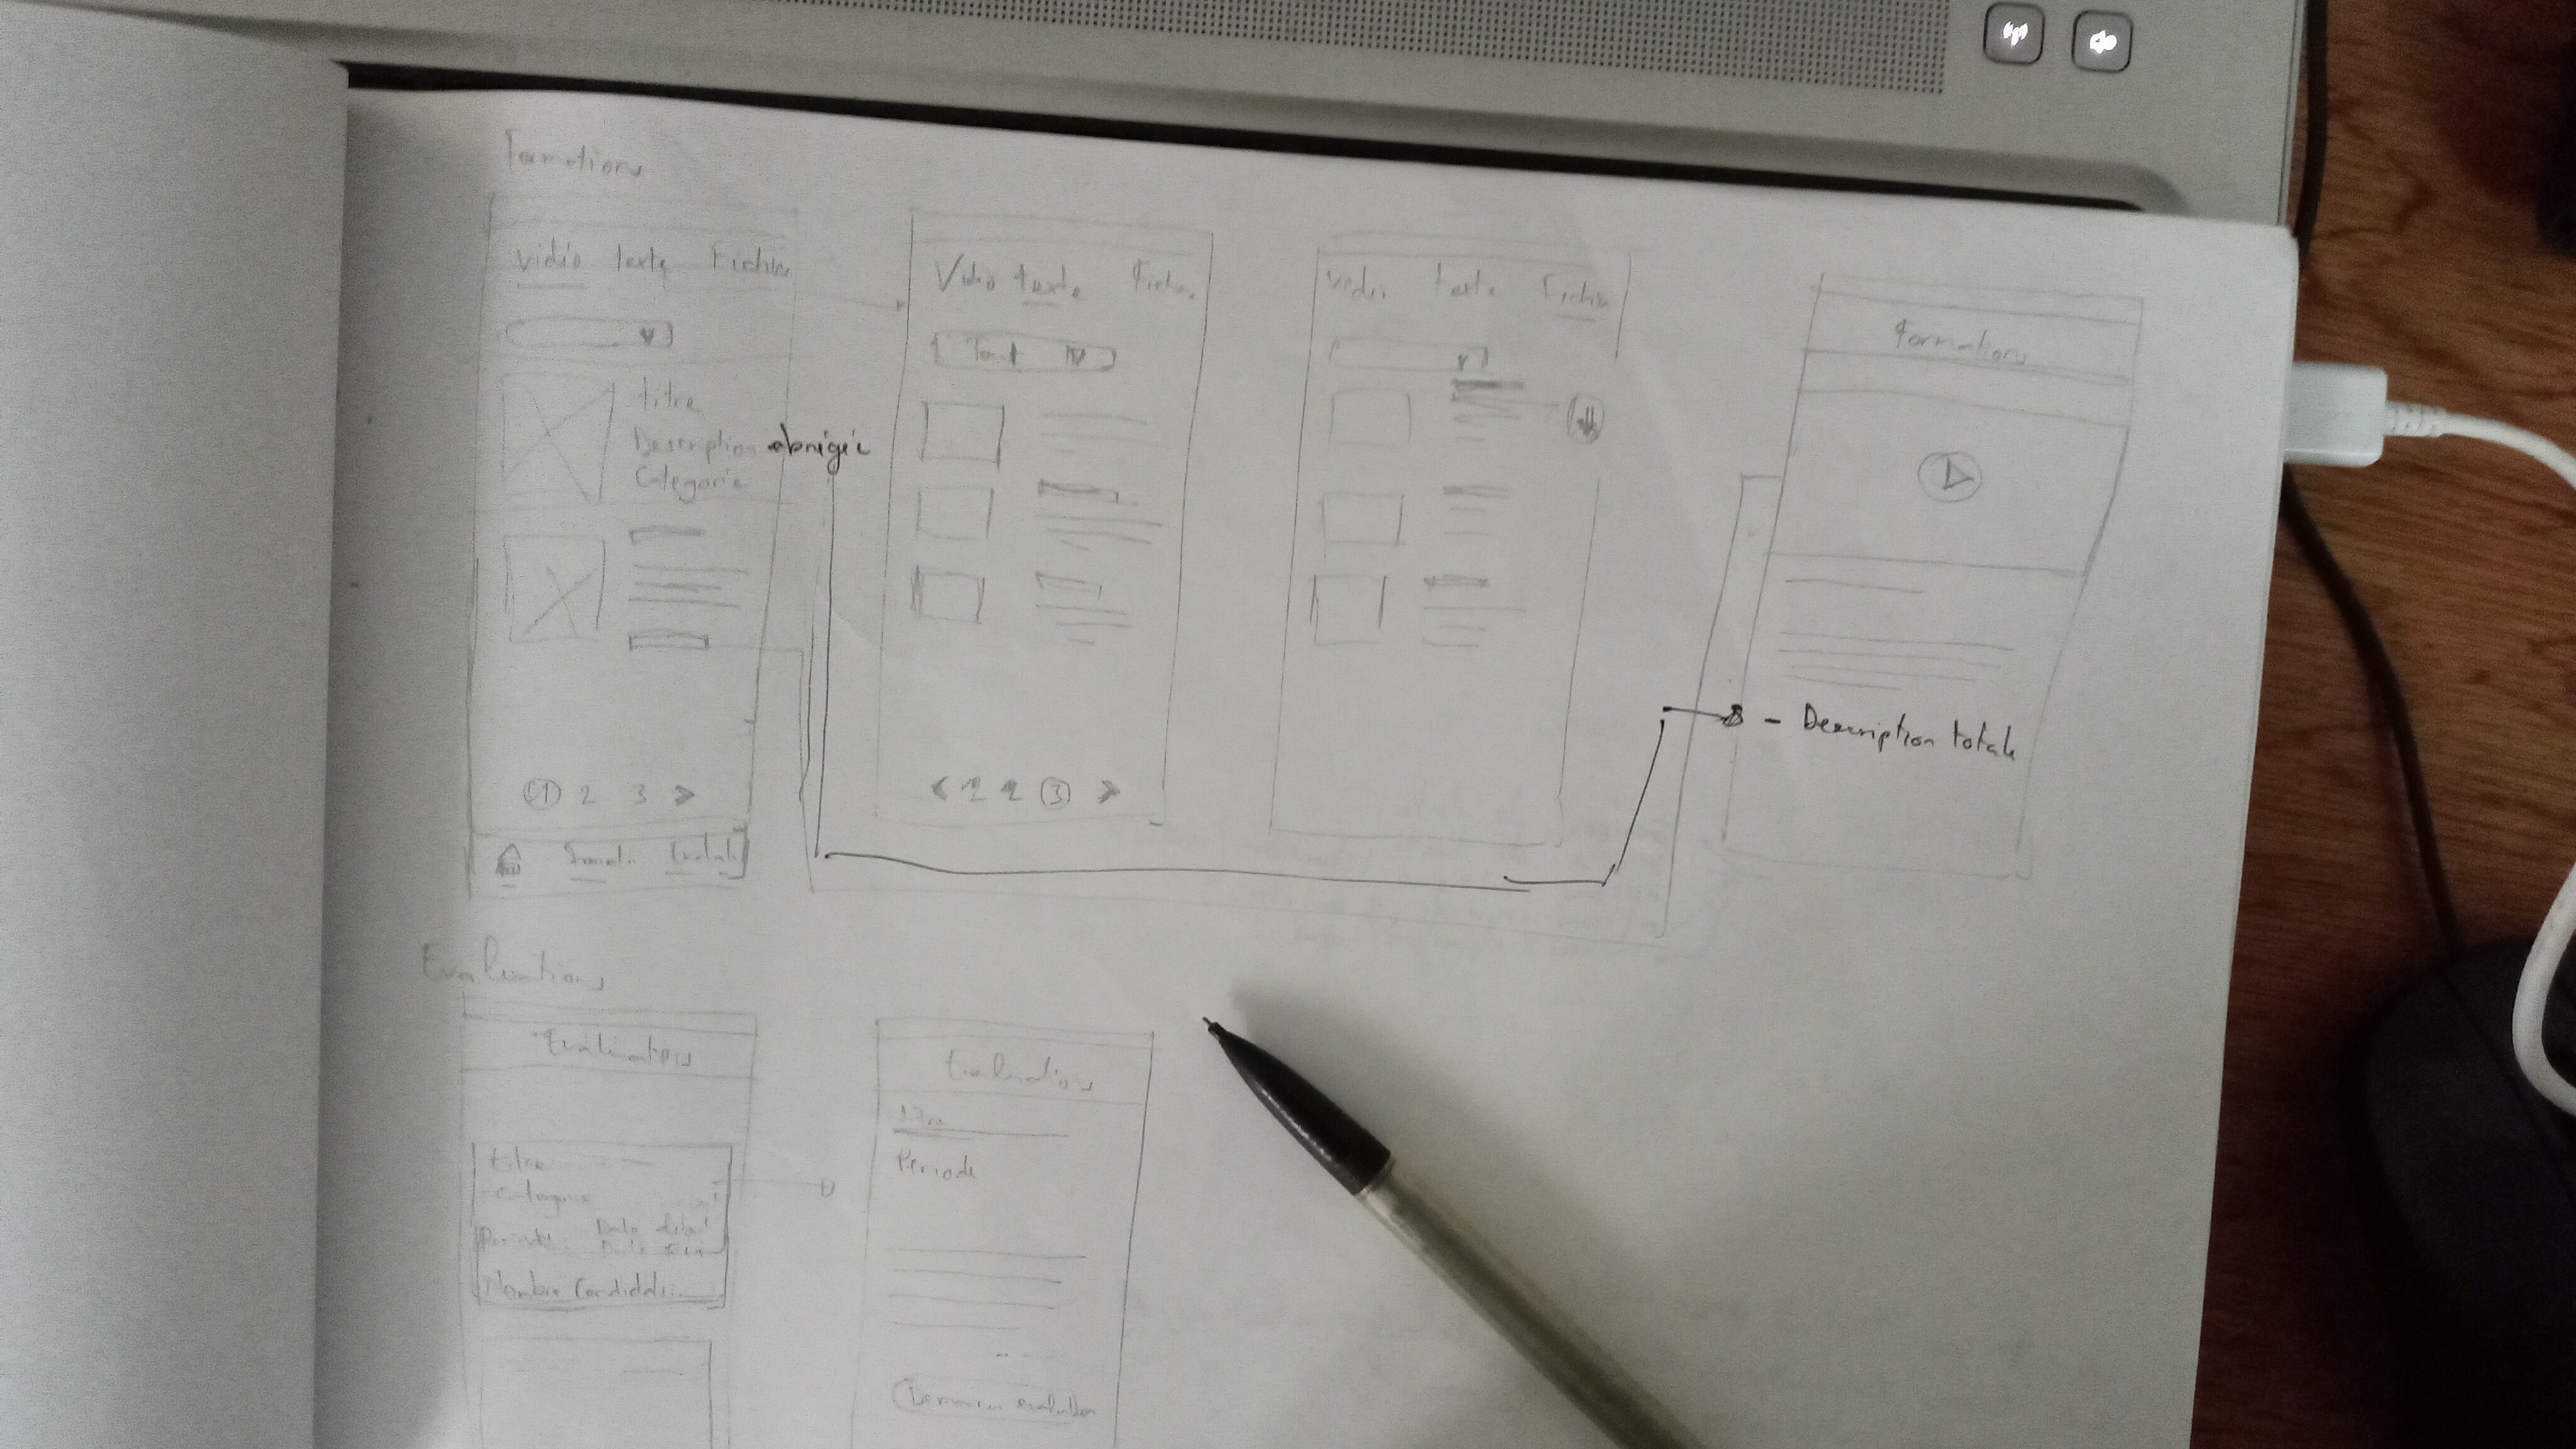 Formations
Vidéo texte Fichier
titre
Description abrégée
Categorie
1 2 3 >
Video texte Fichier
Tout
< 1 2 3 >
Video texte Fichier
Formations
- Description totale
Evaluations
Evaluations
titre
Categorie
Periode : Date debut
Date Fin
Nombre Candidats :
Evaluations
Periode
Demarrer evaluation